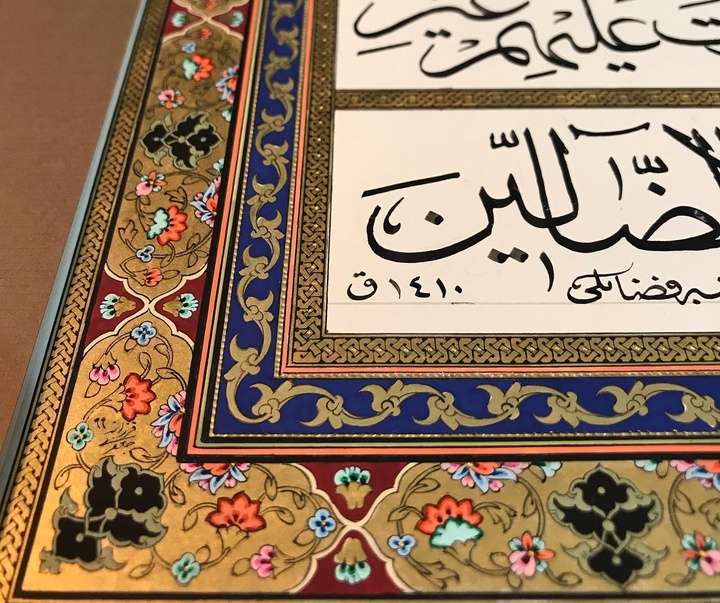 عليهم غير
الضَّالّين
فضائلی ١٤١٠ ق